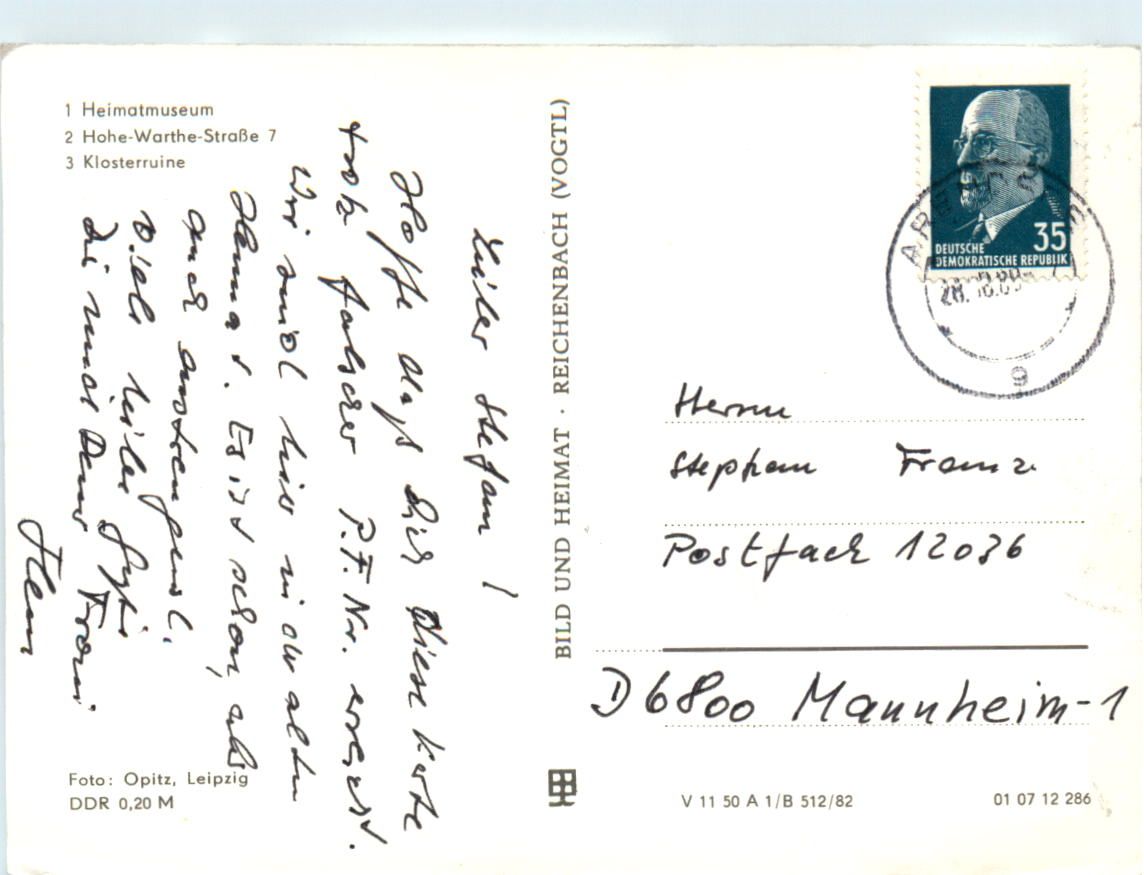 1 Heimatmuseum
2 Hohe-Warthe-Straße 7
3 Klosterruine
Lieber Stefan!
Hoffe daß Dich diese Karte
trotz falscher P.F. Nr. erreicht.
Wir sind hier in der alten
Heimat. Es ist schön, aber
auch anstrengend.
Viele liebe Grüße
Dir und Deiner
Foto: Opitz, Leipzig
DDR 0,20 M
BILD UND HEIMAT · REICHENBACH (VOGTL)
35
DEUTSCHE
DEMOKRATISCHE REPUBLIK
9
Herrn
Stephan Franz
Postfach 12036
D 6800 Mannheim-1
V 11 50 A 1/B 512/82
01 07 12 286